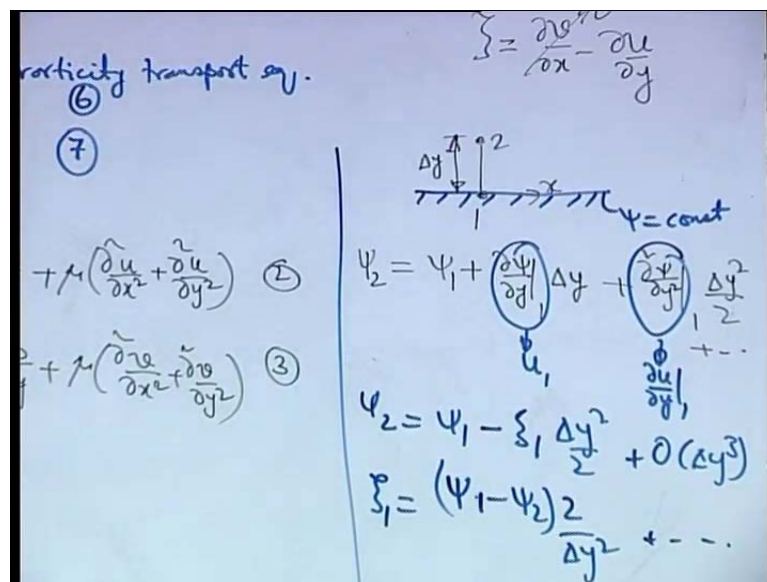 ξ = ∂v/∂x − ∂u/∂y
vorticity transport eq.
⑥
⑦
+ μ(∂²u/∂x² + ∂²u/∂y²) ②
+ μ(∂²v/∂x² + ∂²v/∂y²) ③
Δy 2
x
1 ψ = const
ψ₂ = ψ₁ + ∂ψ/∂y|₁ Δy + ∂²ψ/∂y²|₁ Δy²/2 + ...
u₁ ∂u/∂y|₁
ψ₂ = ψ₁ − ξ₁ Δy²/2 + O(Δy³)
ξ₁ = (ψ₁ − ψ₂) 2/Δy² + - - .